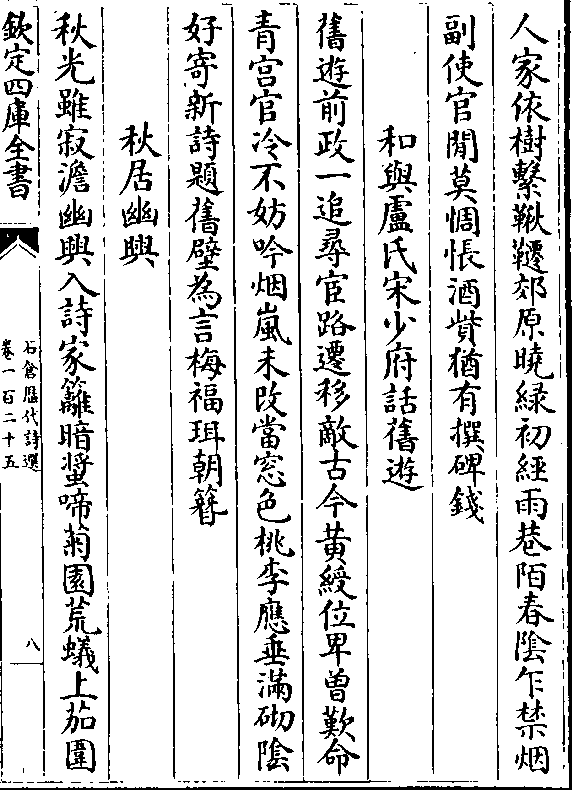 人家依樹繫鞦韆郊原曉緑初經雨巷陌春陰乍禁烟
副使官閒莫惆悵酒貲猶有撰碑錢
和與盧氏宋少府話舊遊
舊遊前政一追尋宦路遷移敵古今黄綬位卑曽歎命
青宫官冷不妨吟烟嵐未改當窓色桃李應垂滿砌陰
好寄新詩題舊壁為言梅福珥朝簮
秋居幽興
秋光雖寂澹幽興入詩家籬暗蛩啼菊園荒蟻上茄圍
欽定四庫全書
石倉歴代詩選
卷一百二十五
八